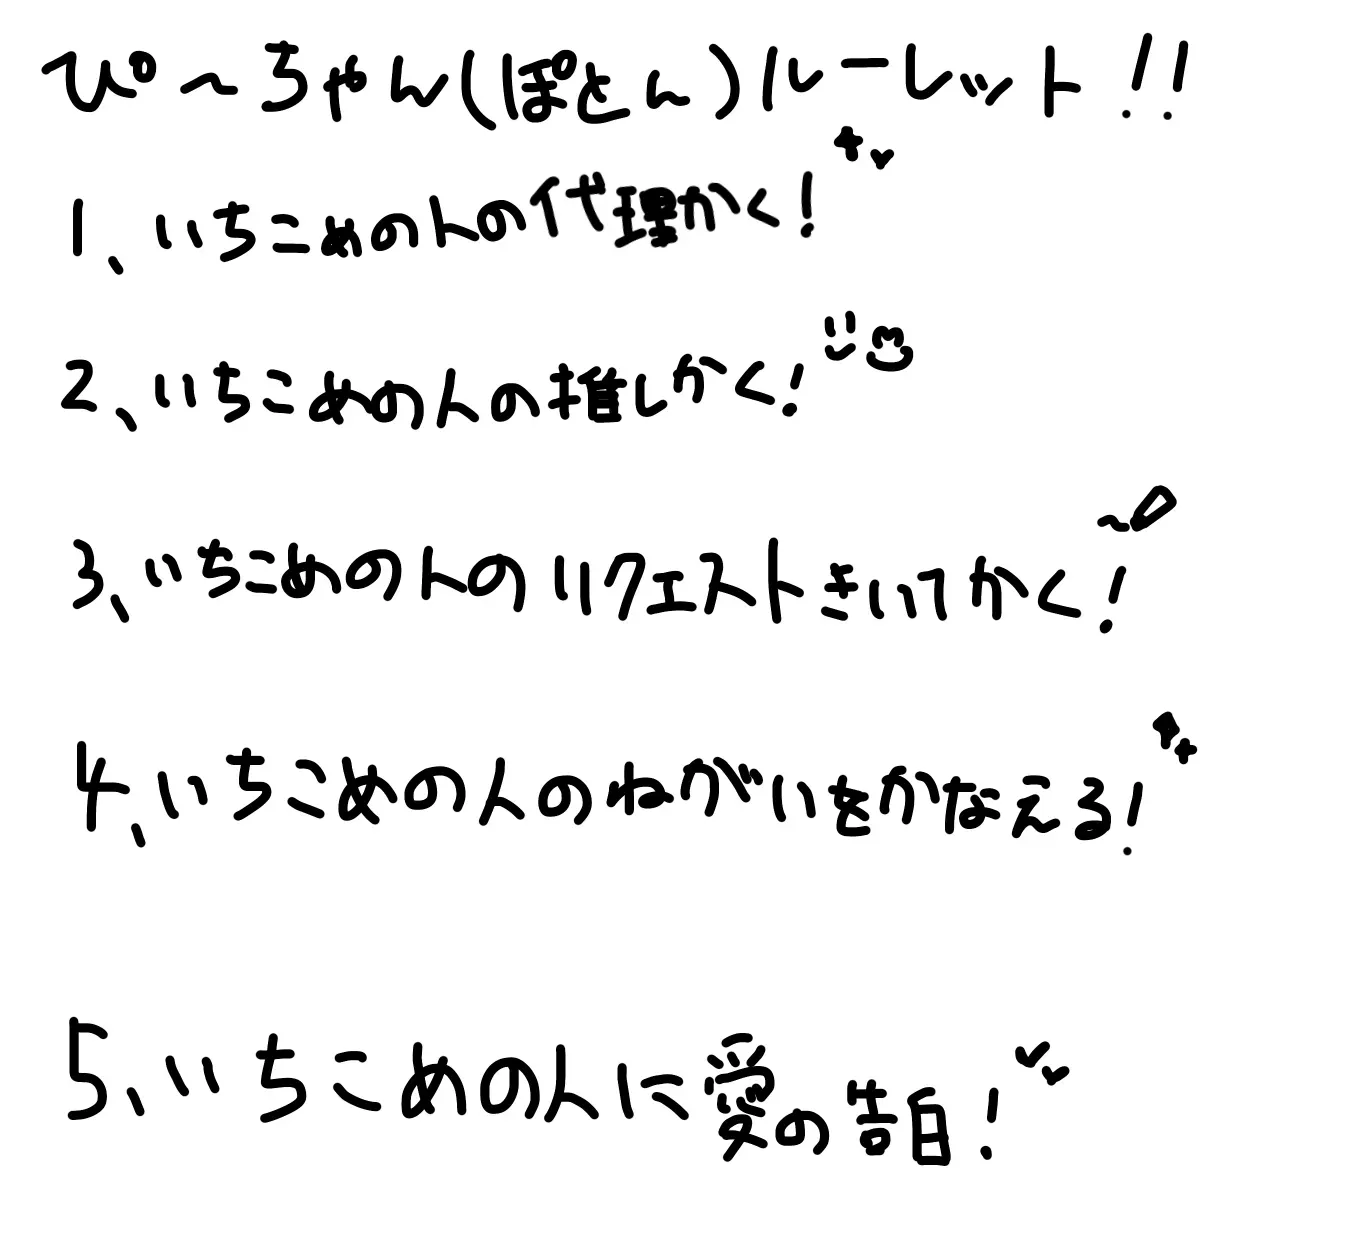 ぴ〜ちゃん(ぽとん)ルーレット!!
1、いちこめの人の代理かく!
2、いちこめの人の推しかく!
3、いちこめの人のリクエストきいてかく!
4、いちこめの人のねがいをかなえる!
5、いちこめの人に愛の告白!